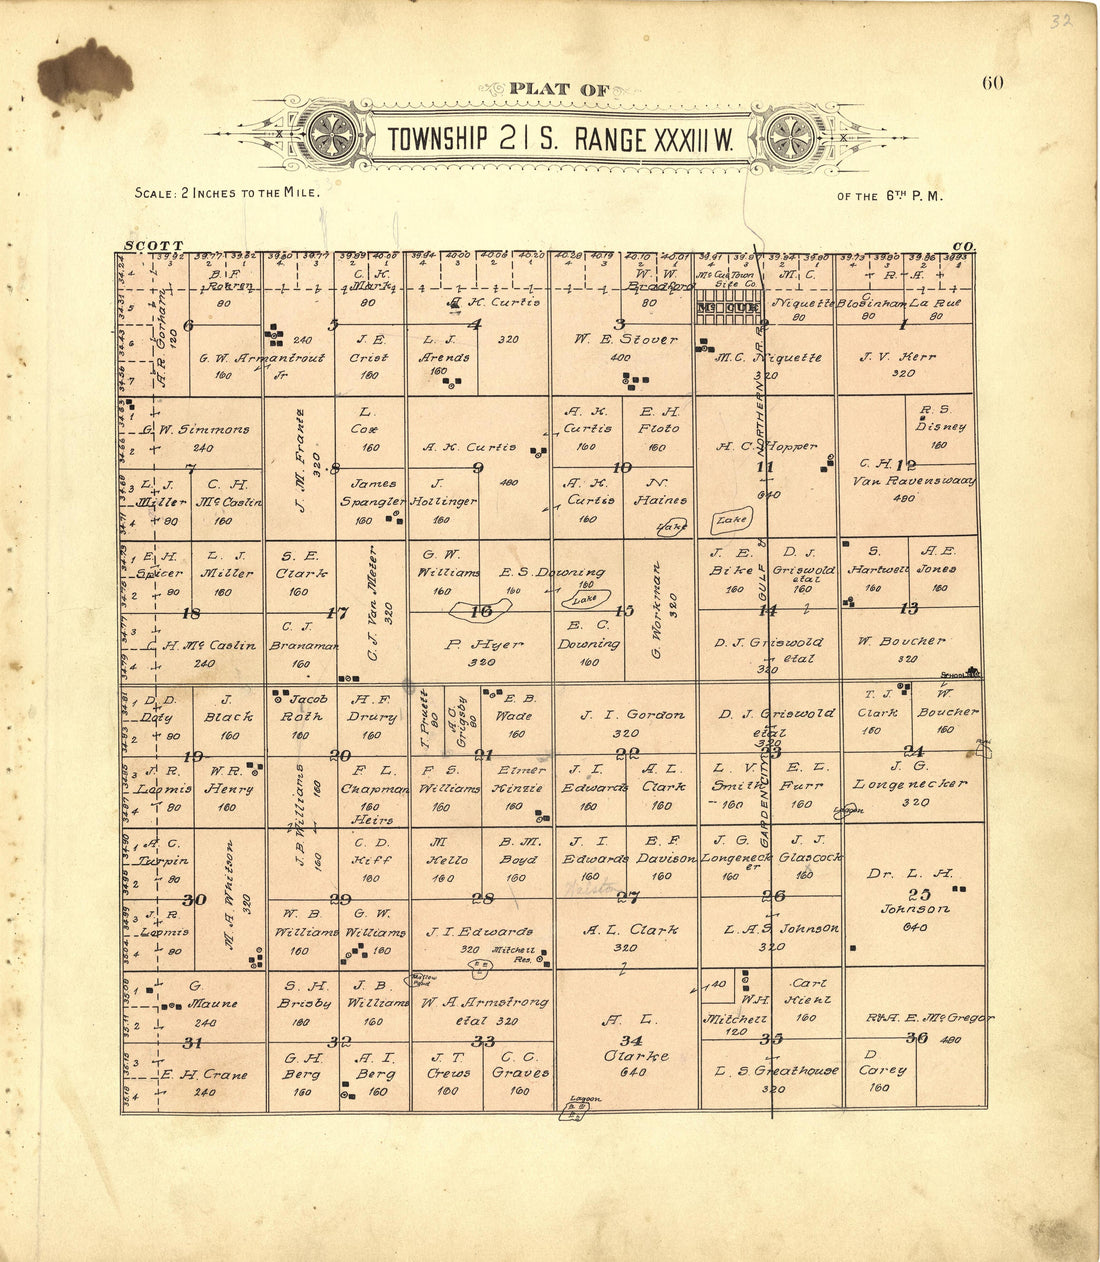 32
60
PLAT OF
TOWNSHIP 21 S. RANGE XXXIII W.
SCALE: 2 INCHES TO THE MILE.
OF THE 6TH P. M.
SCOTT
CO.
B. F. Rohren 80
C. K. Mark 80
A. K. Curtis
W. W. Bradford 80
McCue Town Site Co.
M. C. Niquette 80
C. Blosinham 80
R. A. La Rue 80
Mc CUE
A. R. Gorham 120
6
5
4
3
2
1
G. W. Armantrout Jr
160
240
J. E. Crist 160
L. J. Arends 160
320
W. E. Stover 400
M. C. Niquette 320
J. V. Kerr 320
G. W. Simmons 240
J. M. Frantz 320
L. Cox 160
A. K. Curtis
480
A. K. Curtis 160
E. H. Floto 160
H. C. Hopper
640
R. S. Disney 160
7
8
9
10
11
12
L. J. Miller 80
C. H. McCaslin 160
James Spangler 160
J. Hollinger 160
A. K. Curtis 160
N. Haines
Lake
Lake
C. H. Van Ravenswaay 480
E. H. Spicer 80
L. J. Miller 160
S. E. Clark 160
C. J. Van Meter 320
G. W. Williams 160
E. S. Downing 160
160
Lake
G. Workman 320
J. E. Bike 160
D. J. Griswold etal 160
S. Hartwell 160
A. E. Jones 160
18
17
16
15
14
13
C. H. McCaslin 240
C. J. Branaman 160
P. Hyer 320
E. C. Downing 160
D. J. Griswold etal 320
W. Boucher 320
SCHOOL
D. D. Doty 80
J. Black 160
Jacob Roth 160
H. F. Drury 160
T. Pruett 80
A. C. Grigsby 80
E. B. Wade 160
J. I. Gordon 320
D. J. Griswold etal 320
T. J. Clark 160
W. Boucher 160
19
20
21
22
23
24
J. R. Loomis 80
W. R. Henry 160
J. B. Williams 160
160
F. L. Chapman 160 Heirs
F. S. Williams 160
Elmer Kinzie 160
J. I. Edwards 160
A. L. Clark 160
L. V. Smith 160
E. L. Furr 160
J. G. Longenecker 320
Lagoon
GARDEN CITY GULF & NORTHERN R. R.
A. C. Turpin 80
M. A. Whitson 320
C. D. Kiff 160
M Kello 160
B. M. Boyd 160
J. I. Edwards 160
E. F. Davison 160
J. G. Longenecker 160
J. J. Glascock 160
Dr. L. H. Johnson 640
30
29
28
27
26
25
J. R. Loomis 80
W. B. Williams 160
G. W. Williams 160
J. I. Edwards 320
Mitchell Res.
A. L. Clark 320
L. A. S. Johnson 320
G. Maune 240
S. H. Brisby 160
J. B. Williams 160
W. A Armstrong etal 320
A. L. Clarke 640
40
W. H. Mitchell 120
Carl Kiehl 160
R & A. E. McGregor 480
31
32
33
34
35
36
E. H. Crane 240
G. H. Berg 160
A. I. Berg 160
J. T. Crews 160
C. C. Graves 160
L. S. Greathouse 320
D Carey 160
Lagoon